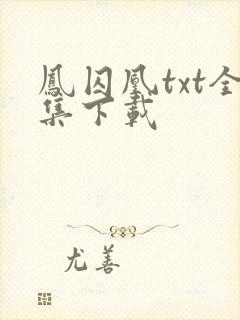 鳳囚凰txt全
集下載
尤善